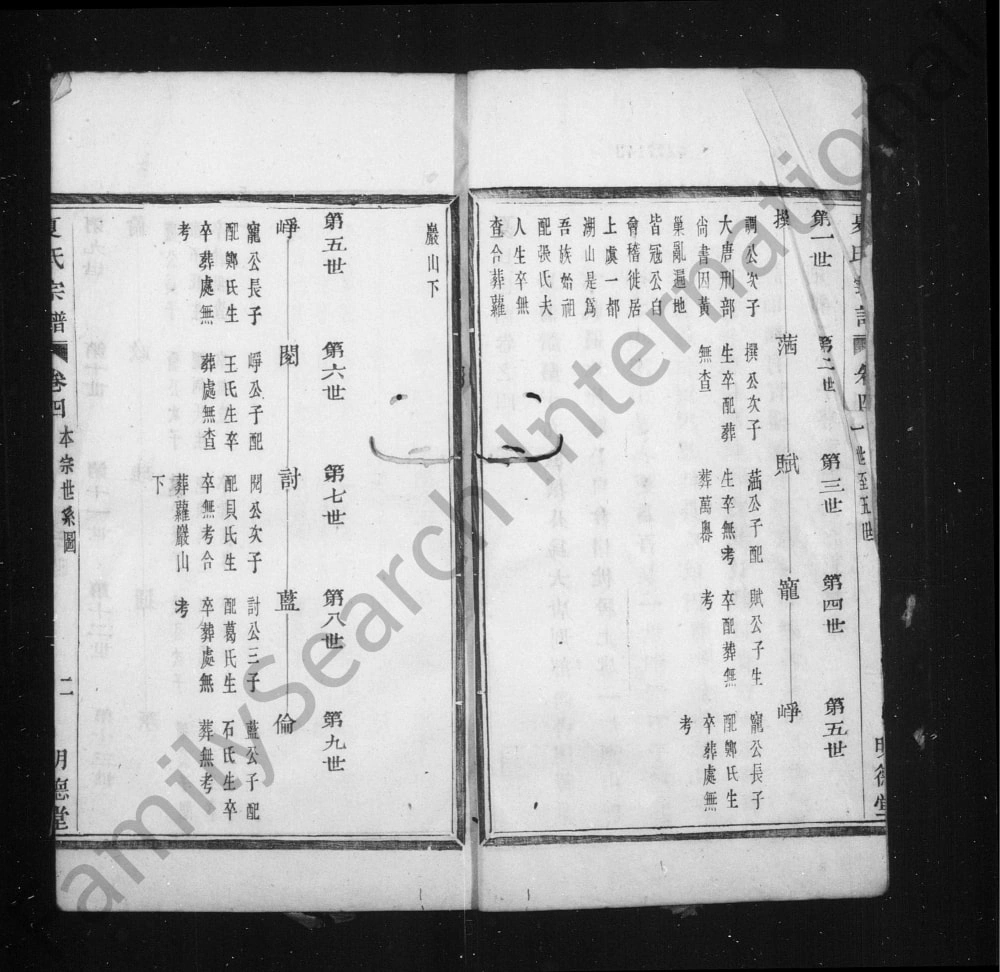 夏氏宗譜 卷四 一世至五世 明德堂
第一世
第二世
第三世
第四世
第五世
操
調公次子
大唐刑部
尙書因黃
巢亂遍地
皆冠公自
會稽徙居
上虞一都
湖山是爲
吾族始祖
配張氏夫
人生卒無
查合葬蘿
撰公次子
生卒配葬
無查
賦
公子配
生卒無考
葬萬
寵
賦公子生
卒配葬無
考
崢
寵公長子
配鄭氏生
卒葬處無
考
巖山下
第五世
第六世
第七世
第八世
第九世
崢
寵公長子
配鄭氏生
卒葬處無
考
閎
崢公子配
王氏生卒
葬處無查
討
閎公次子
配貝氏生
卒無考合
葬蘿巖山
下
藍
討公三子
配葛氏生
卒葬處無
考
倫
藍公子配
石氏生卒
葬無考
夏氏宗譜 卷四 本宗世系圖 二 明德堂
FamilySearch International